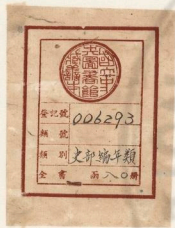 登記號 006293
類號
類別 史部編年類
全書 函 八〇 冊